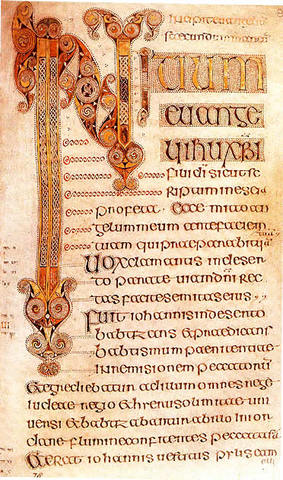 INITIUM
euange
lii ihu xpi
fili di sicut sc
riptum in esei
a profeta ecce mito an
gelum meum ante faciem
tuam qui praeparabit uia
Uox clamantis in deser
to parate uiam dni rec
tas facite semitas eius
Fuit iohannis in deserto
babtizans et praedicans
babtismum paenitentiae
in remisionem peccatorum
Et egrediebatur ad illum omnes
iudeae regio et herusolimitae uni
uersi et babtizabantur ab illo in ior
dane flumine confitentes peccata sua
Et erat iohannis uestitus pylis cam